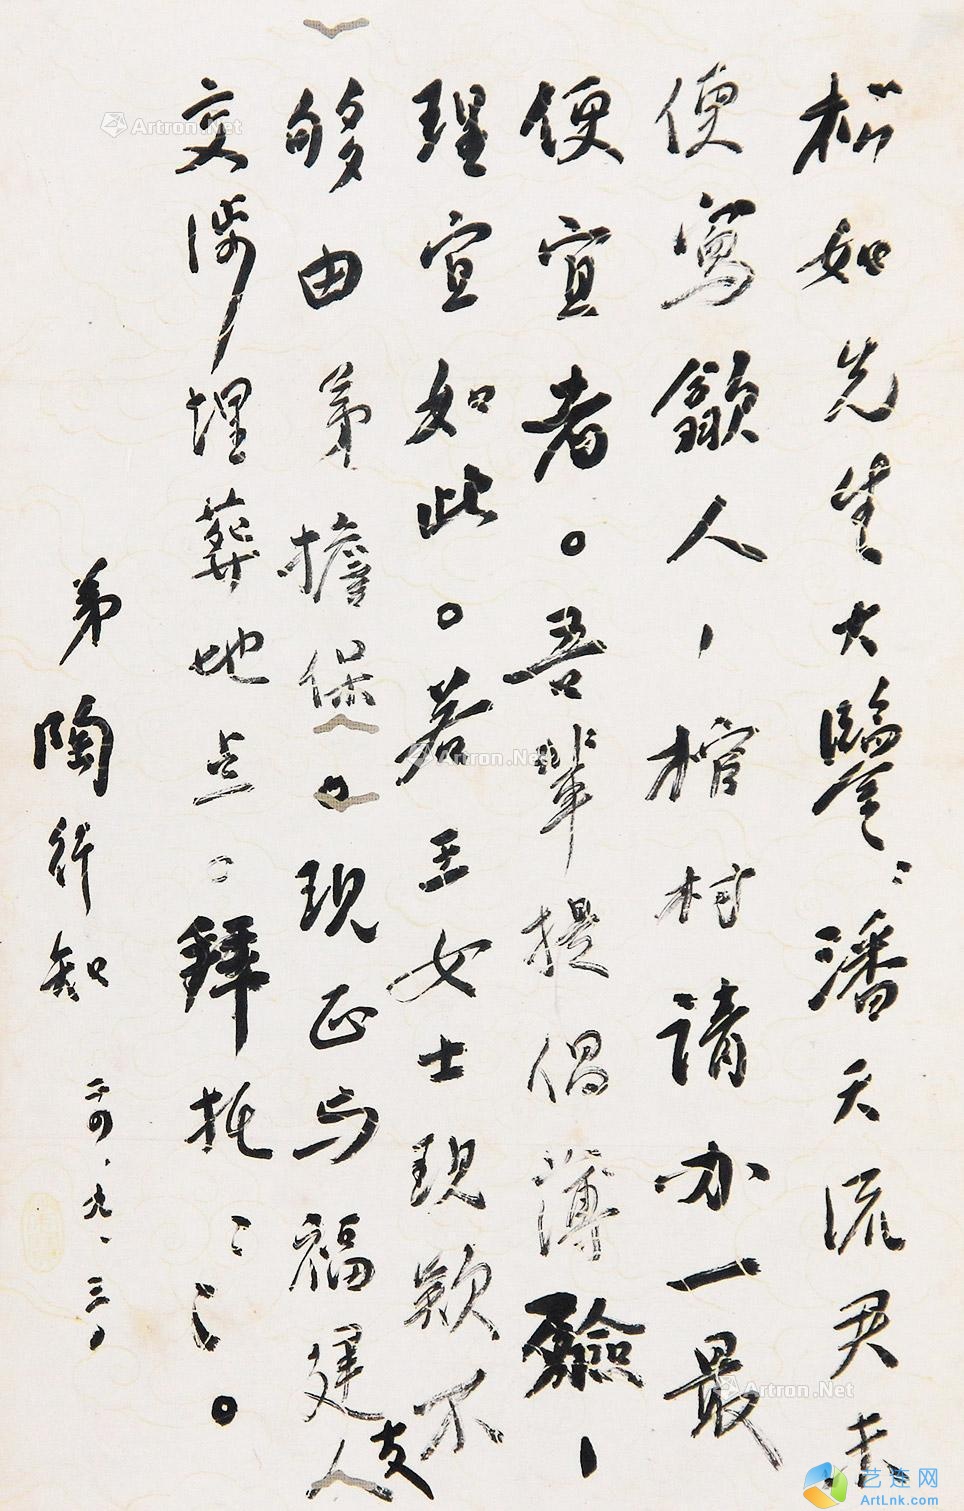 松如先生大鑒：潘天流君
便寫人，棺材請办一最
便宜者。吾輩提倡薄殮，
理宜如此。若王女士現款不
够由弟擔保。現正与福建人
交涉埋葬地点。拜托：：。
弟陶行知 廿四、九、三〇
Artron.Net
Artron.Net
Artron.Net
艺连网
ArtLnk.com